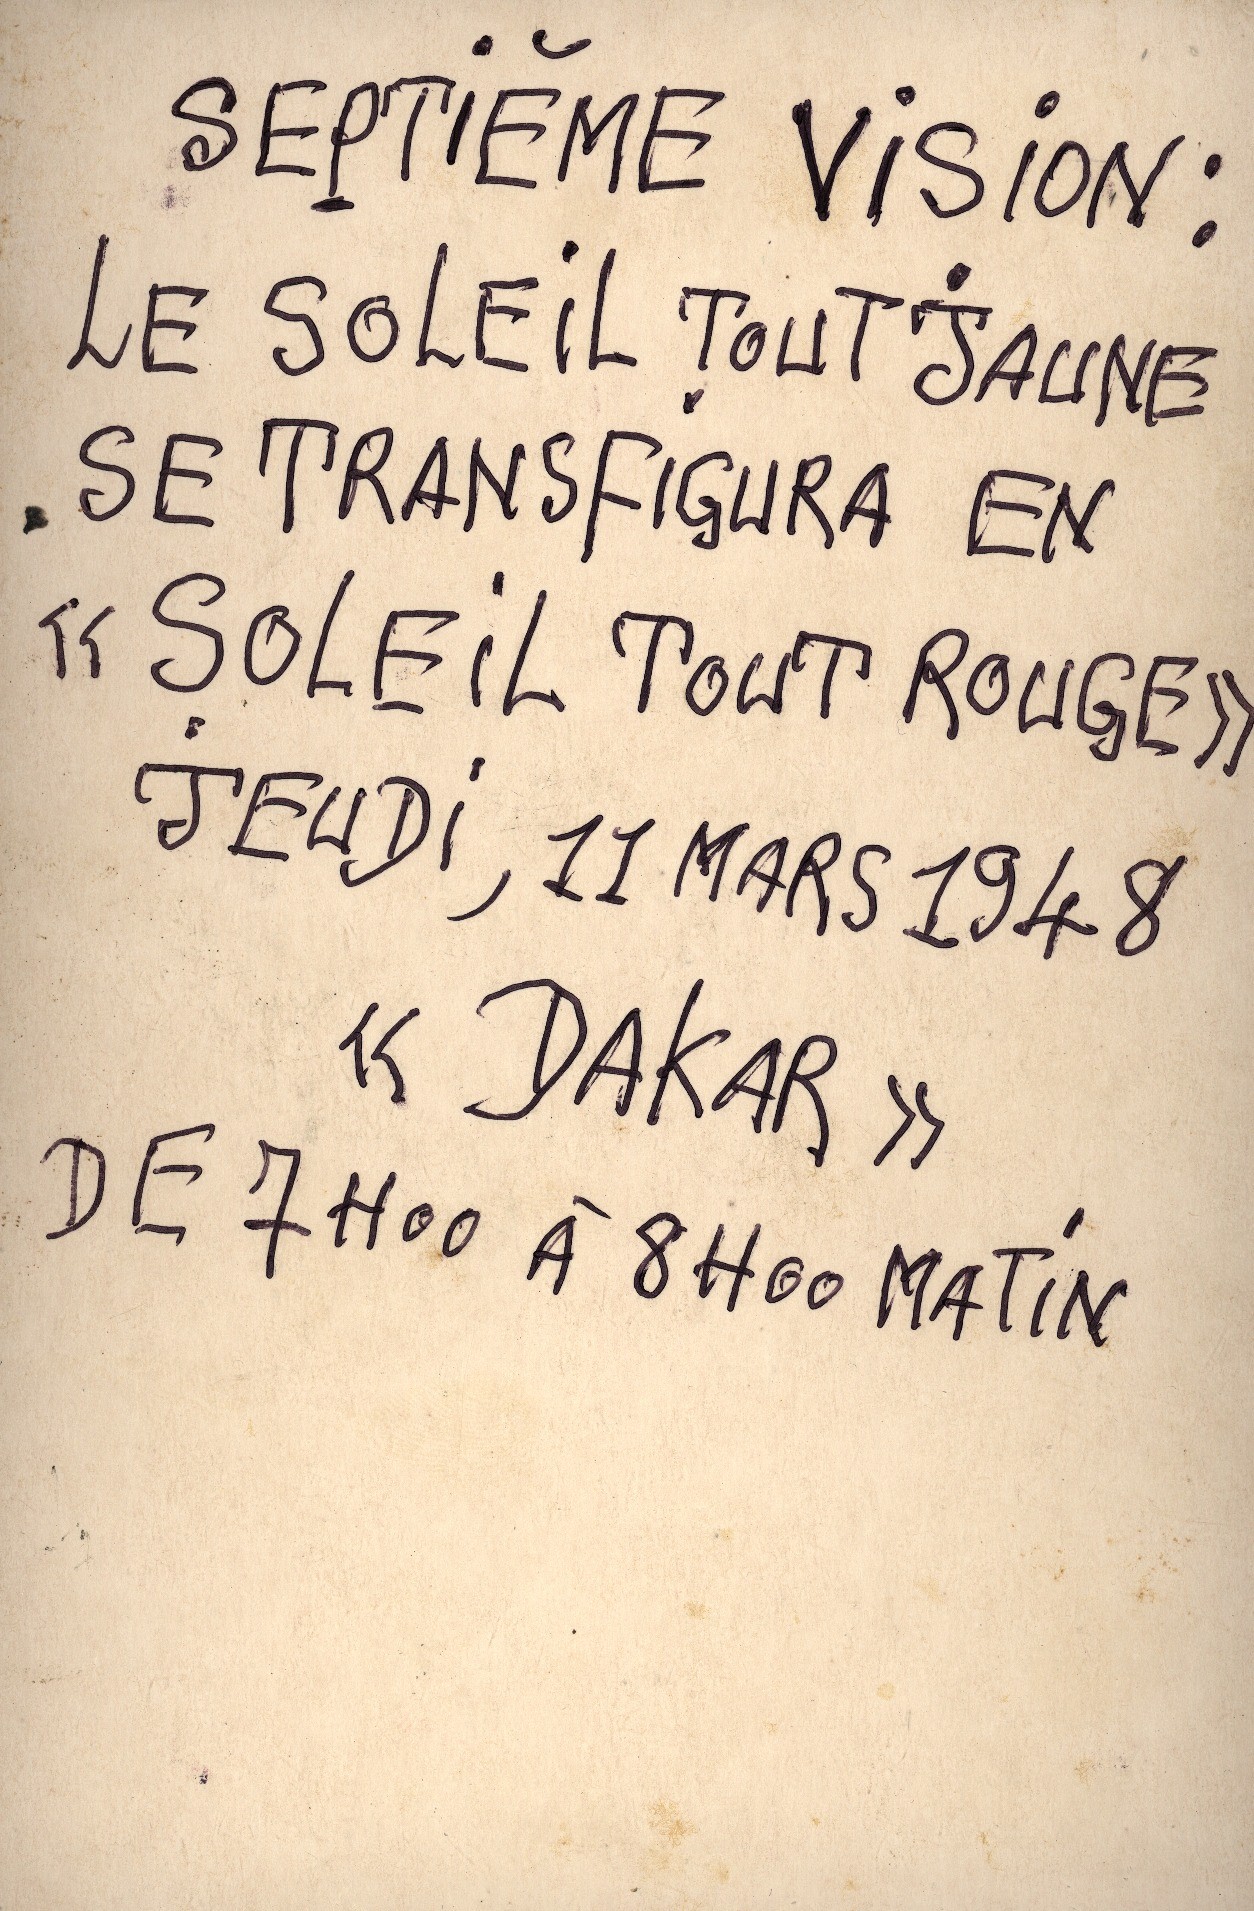 SEPTIĔME ViSiON :
LE SOLEiL TOUT JAUNE
SE TRANSFiGURA EN
« SOLEiL TOUT ROUGE »
JEUDi, 11 MARS 1948
« DAKAR »
DE 7H00 À 8H00 MATiN